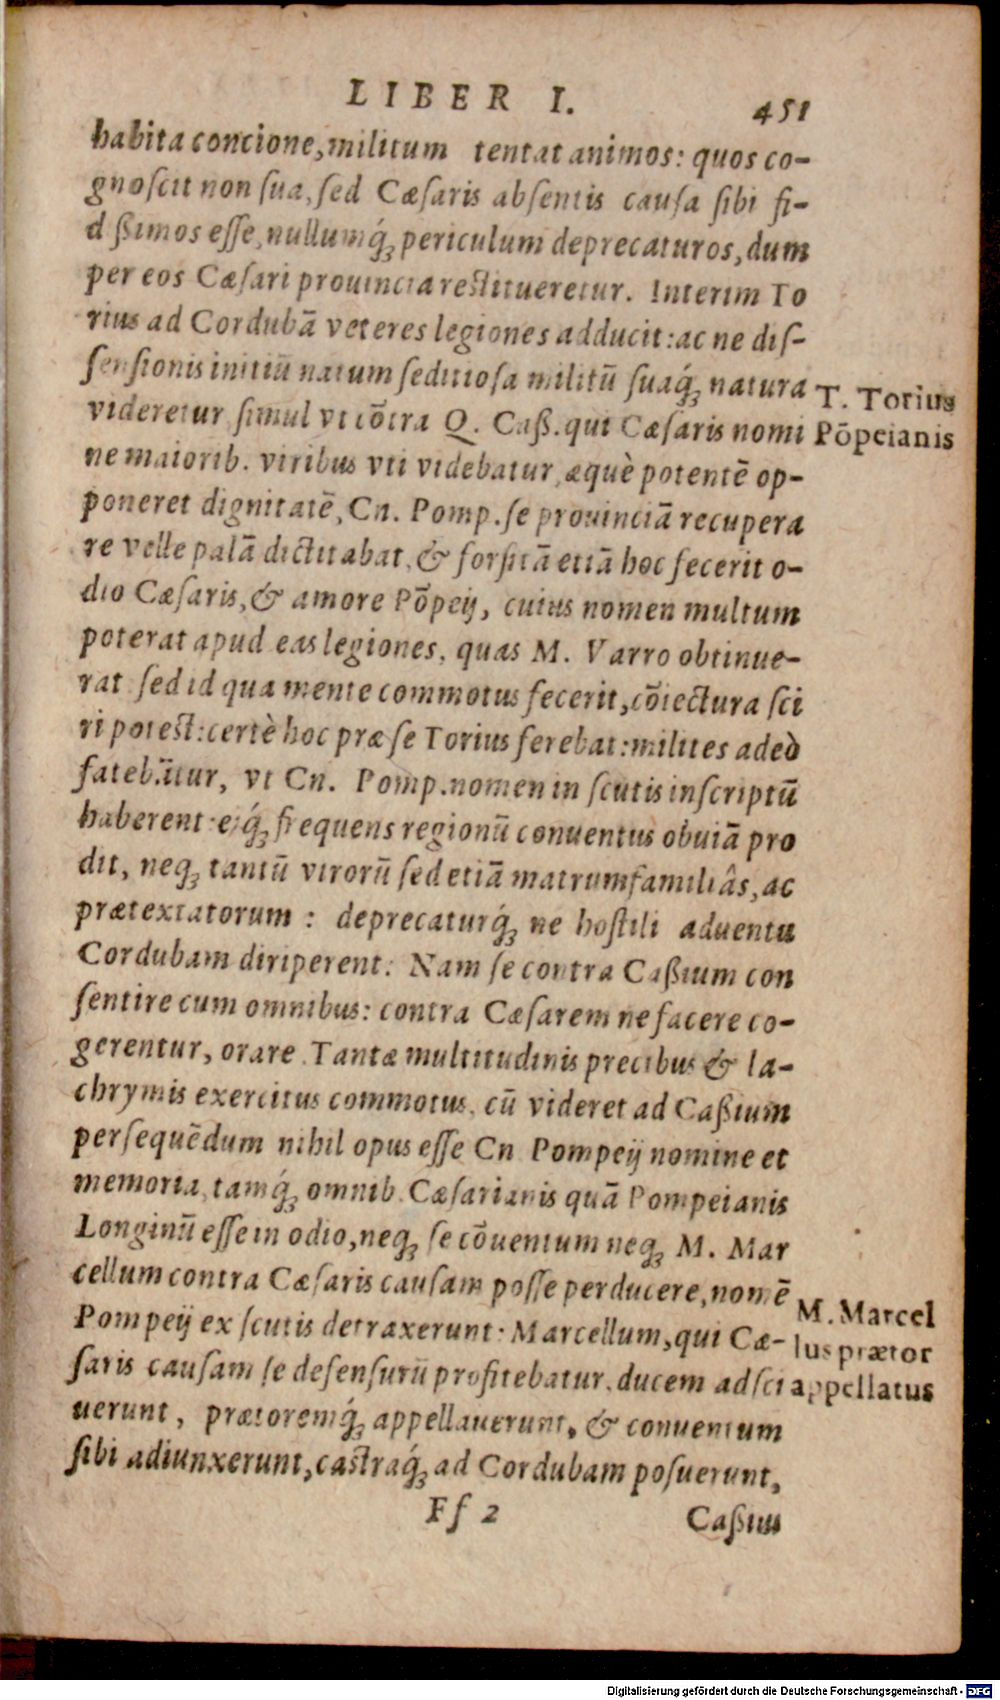 LIBER I. 451
habita concione, militum tentat animos: quos co-
gnoscit non sua, sed Cæsaris absentis causa sibi fi-
d ßimos esse, nullumq́ꝫ periculum deprecaturos, dum
per eos Cæsari prouincia restitueretur. Interim To
rius ad Cordubã veteres legiones adducit: ac ne dis-
sensionis initiũ natum seditiosa militũ suaq́ꝫ natura
videretur, simul vt cõtra Q. Caß. qui Cæsaris nomi
ne maiorib. viribus vti videbatur, æquè potentẽ op-
poneret dignitatẽ, Cn. Pomp. se prouinciã recupera
re velle palã dictitabat, & forsitã etiã hoc fecerit o-
dio Cæsaris, & amore Põpeij, cuius nomen multum
poterat apud eas legiones, quas M. Varro obtinue-
rat sed id qua mente commotus fecerit, cõiectura sci
ri potest: certè hoc præ se Torius ferebat: milites adeò
fatebãtur, vt Cn. Pomp. nomen in scutis inscriptũ
haberent: eiq́ꝫ frequens regionũ conuentus obuiã pro
dit, neqꝫ tantũ virorũ sed etiã matrumfamiliâs, ac
prætextatorum: deprecaturq́ꝫ ne hostili aduentu
Cordubam diriperent: Nam se contra Caßium con
sentire cum omnibus: contra Cæsarem ne facere co-
gerentur, orare. Tantæ multitudinis precibus & la-
chrymis exercitus commotus, cũ videret ad Caßium
persequẽdum nihil opus esse Cn Pompeij nomine et
memoria, tamq́ꝫ omnib. Cæsarianis quã Pompeianis
Longinũ esse in odio, neqꝫ se cõuentum neqꝫ M. Mar
cellum contra Cæsaris causam posse perducere, nomẽ
Pompeij ex scutis detraxerunt: Marcellum, qui Cæ-
saris causam se defensurũ profitebatur, ducem adsci
uerunt, prætoremq́ꝫ appellauerunt, & conuentum
sibi adiunxerunt, castraq́ꝫ ad Cordubam posuerunt,
Ff 2 Caßius
T. Torius
Põpeianis
M. Marcel
lus prætor
appellatus
Digitalisierung gefördert durch die Deutsche Forschungsgemeinschaft - DFG